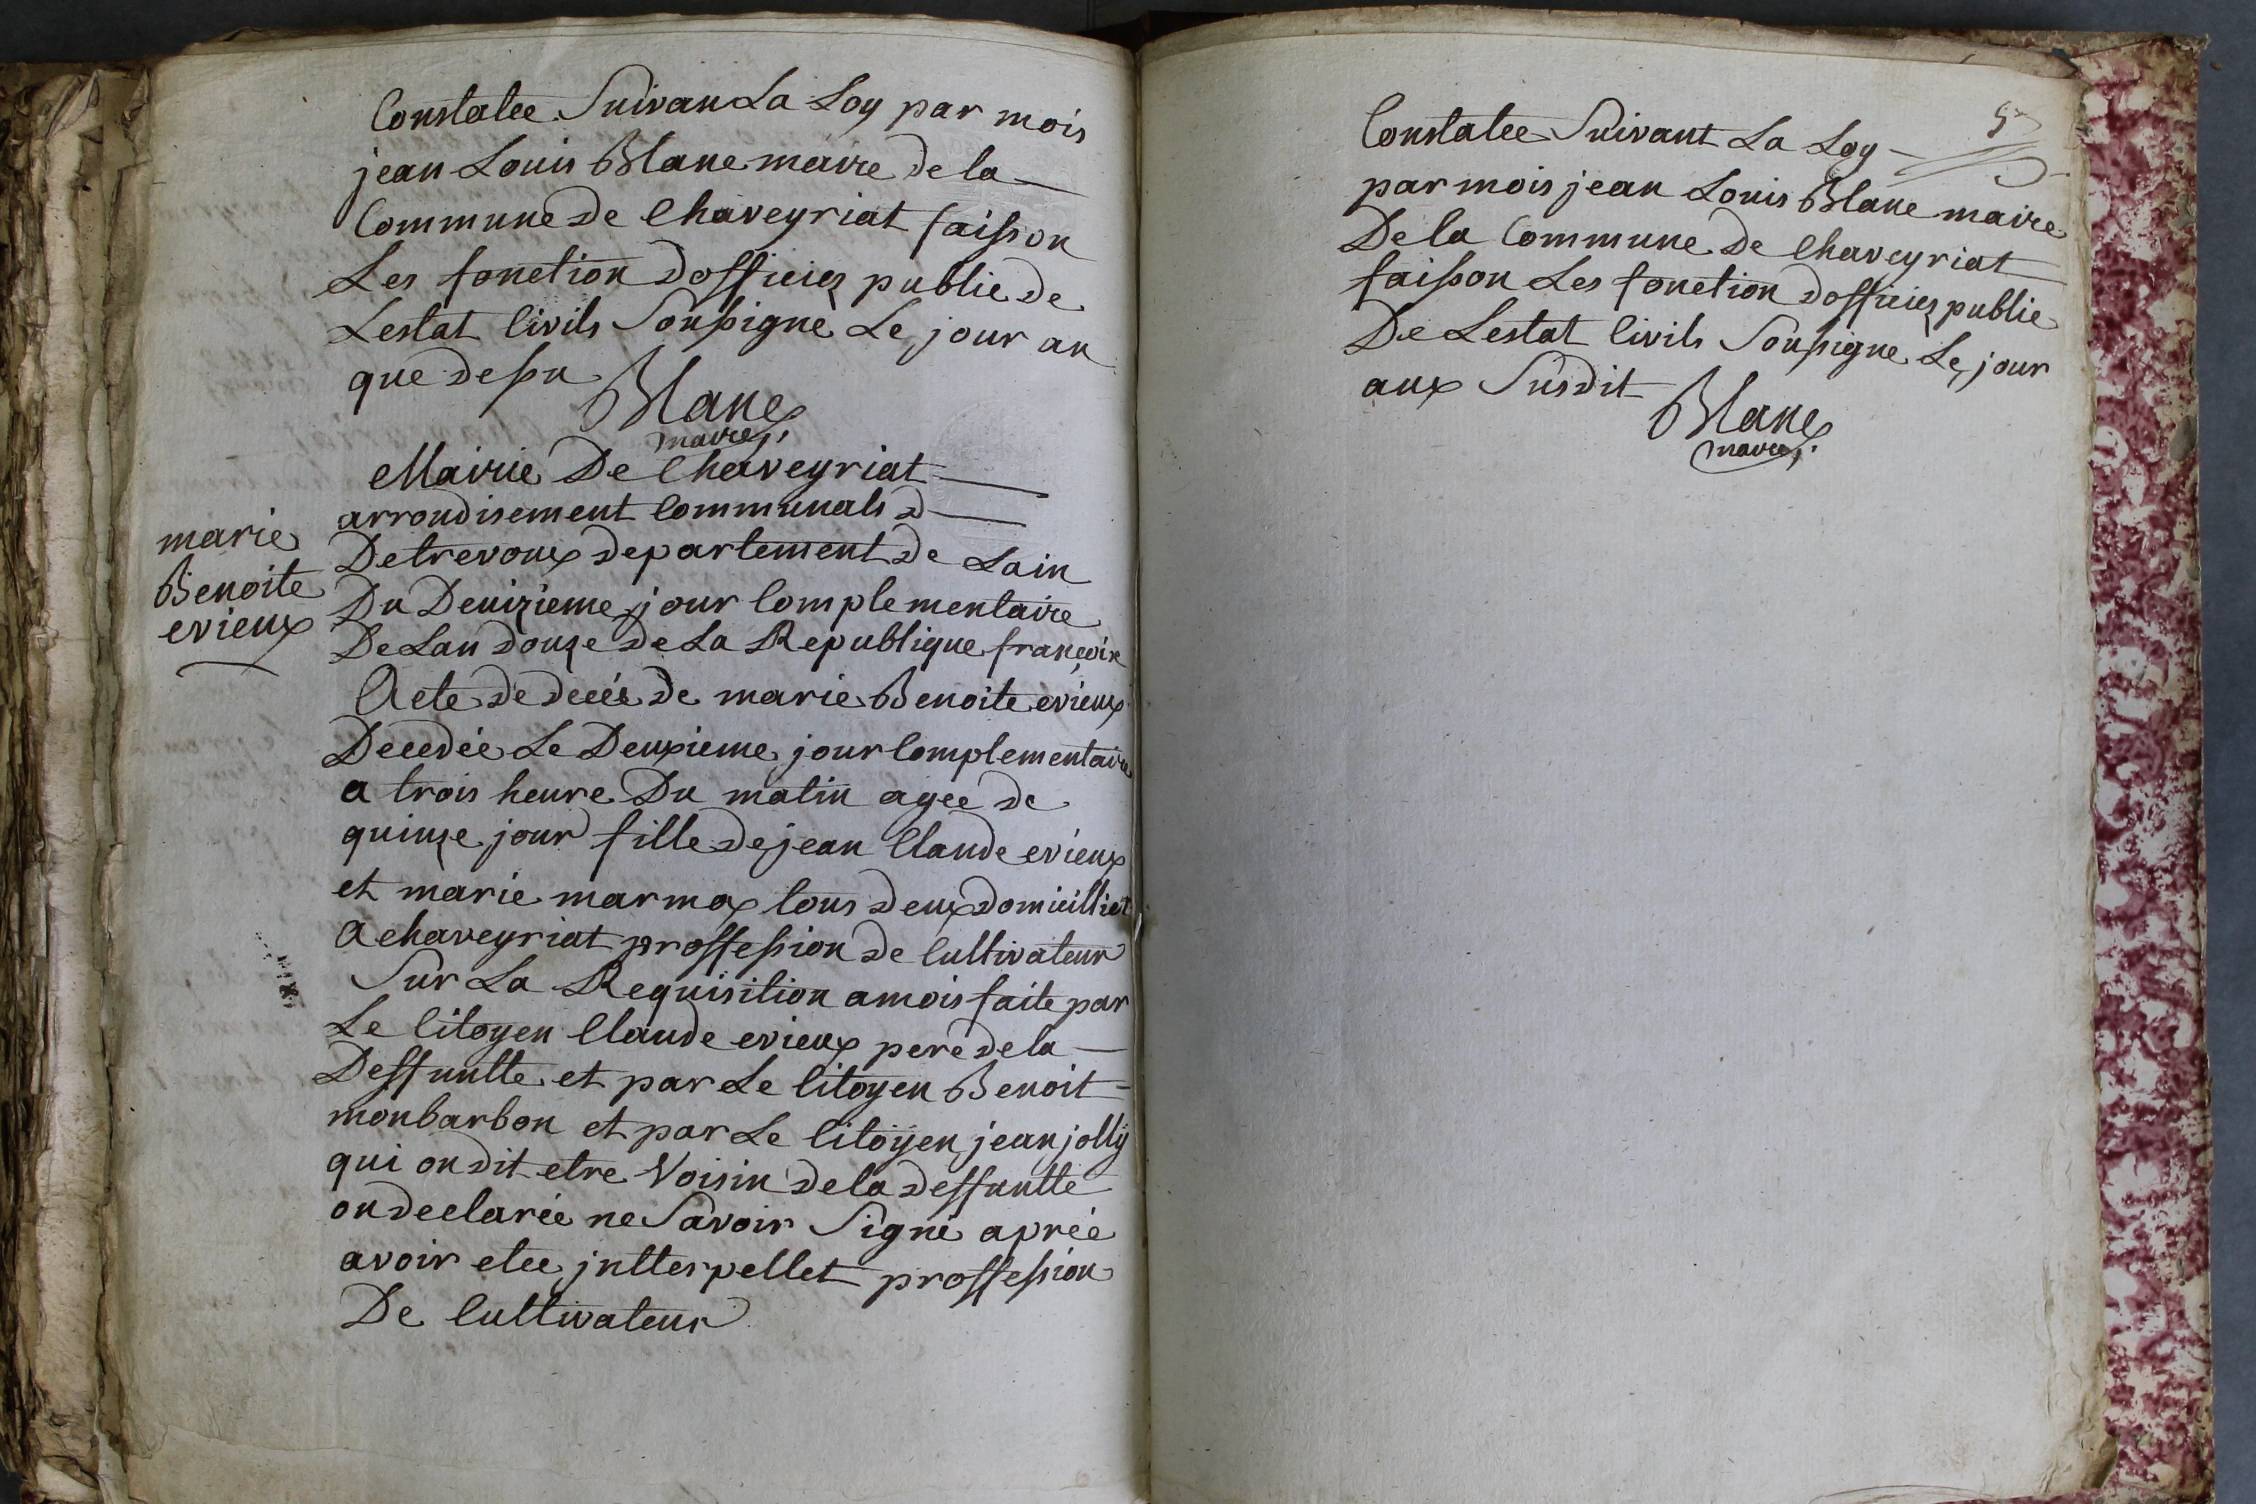 Constatee Suivan La Loy par mois
jean Louis Blanc maire de la
Commune de Chaveyriat faisson
Les fonction dofficier public de
Lestat Civils Soussigné Le jour an
que dessu Blanc
maire
Mairie De Chaveyriat
arrondisement Communals d
De trevoux departement de Lain
Du Deuizieme jour Complementaire
De Lan douze de La Republique françoise
marie
Benoite
evieux
Acte de decés de marie Benoite evieux
Decedée Le Deuxieme jour Complementaire
a trois heure Du matin agee de
quinze jour fille de jean Claude evieux
et marie marmox tous deux domicilliet
a chaveyriat proffession de Cultivateur
Sur La Requisition a mois faite par
Le Citoyen Claude evieux pere de la
Deffuntte et par Le Citoyen Benoit
monbarbon et par Le Citoyen jean jolly
qui on dit etre Voisin de la deffuntte
on declarée ne Savoir Signé aprée
avoir etee jntterpellet proffession
De Cultivateur
Constatee Suivant La Loy
par mois jean Louis Blanc maire
De la Commune de Chaveyriat
faisson Les fonction dofficier public
De Lestat Civils Soussigné Le jour
aux Susdit Blanc
maire